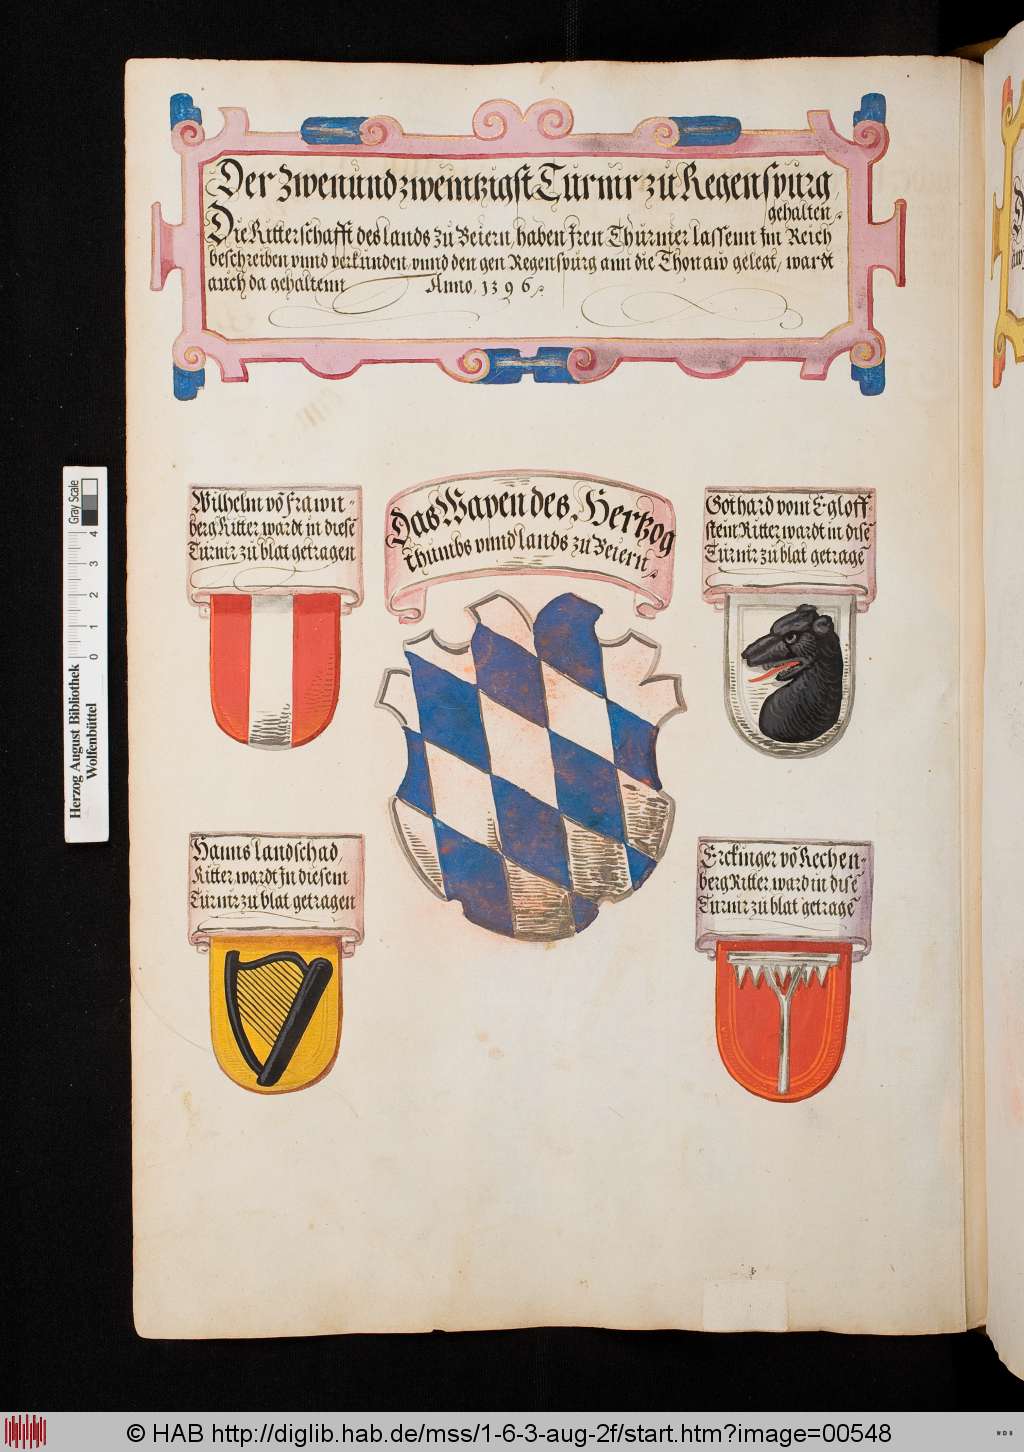 Der Zwenundzweintzigst Turnir zu Regenspurg,
gehalten.
Die Ritterschafft des lands zu Beiern, haben jren Thurnier lassenn jm Reich
beschreiben vnnd verkunden, vnnd den gen Regenspurg ann die Thonaw gelegt, wardt
auch da gehaltenn Anno, 1396.
Wilhelm võ frawn-
berg Ritter wardt in diesẽ
Turnir zu blat getragen
Das Wapen des Hertzog
thumbs vnnd lands zu Beiern.
Gothard vom Egloff-
stein Ritter wardt in disẽ
Turnir zu blat getragẽ
Hanns landschad,
Ritter wardt jn diesem
Turnir zu blat getragen
Erckinger võ Rechen-
berg Ritter ward in disẽ
Turnir zu blat getragẽ
Herzog August Bibliothek
Wolfenbüttel
Gray Scale
0 1 2 3 4
© HAB http://diglib.hab.de/mss/1-6-3-aug-2f/start.htm?image=00548